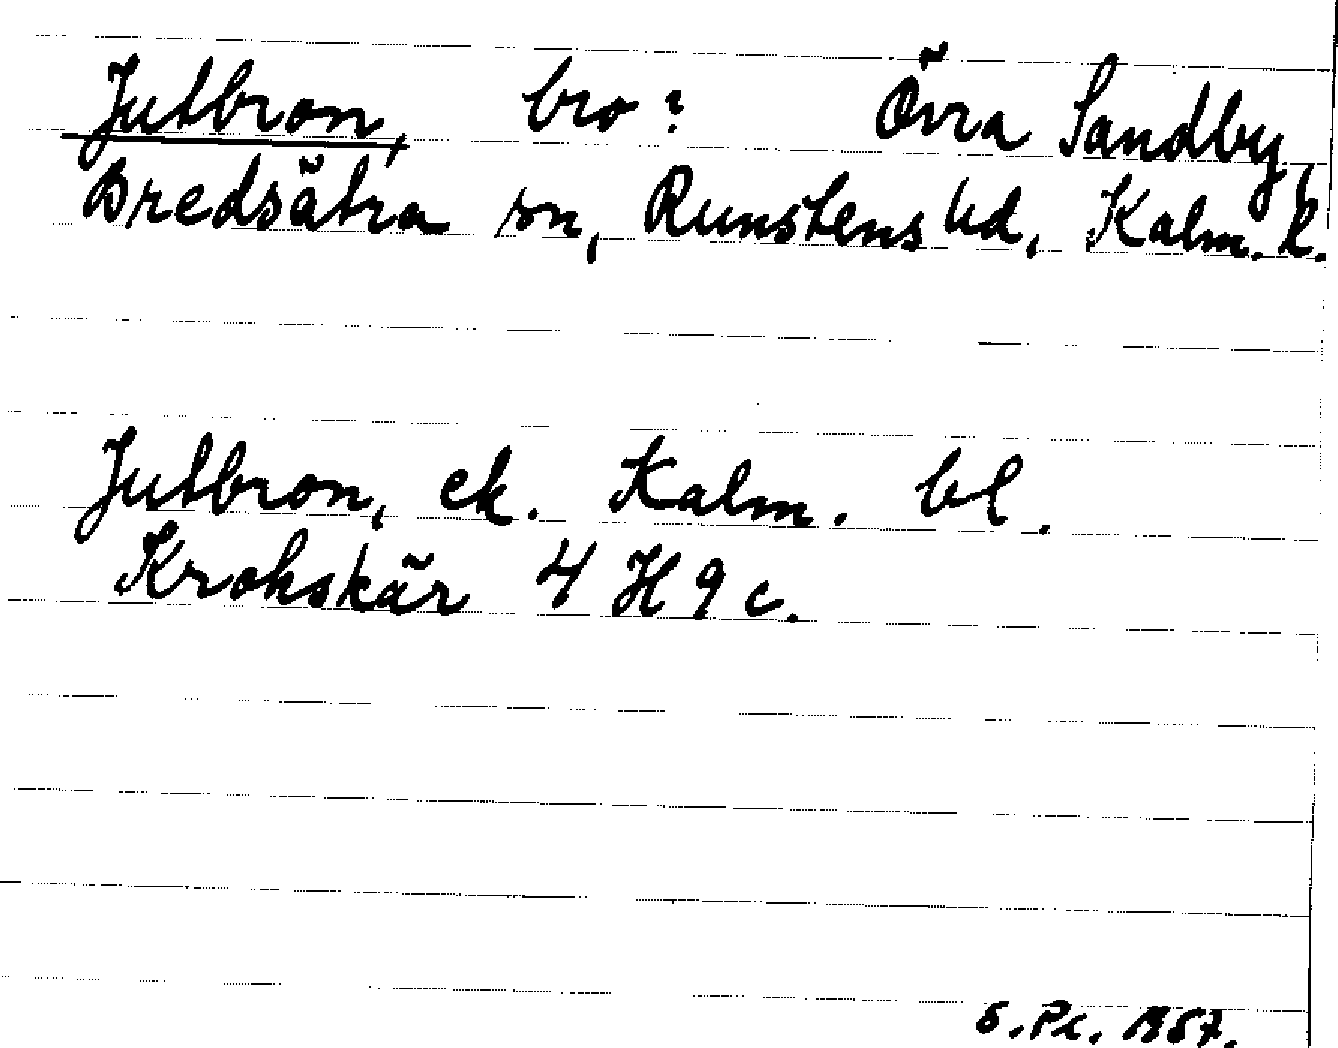 Jutbron, bro? Övra Sandby,
Bredsätra sn, Runstens hd, Kalm. l.
Jutbron, ek. Kalm. bl.
Krokskär 4 H 9 c.
1957.